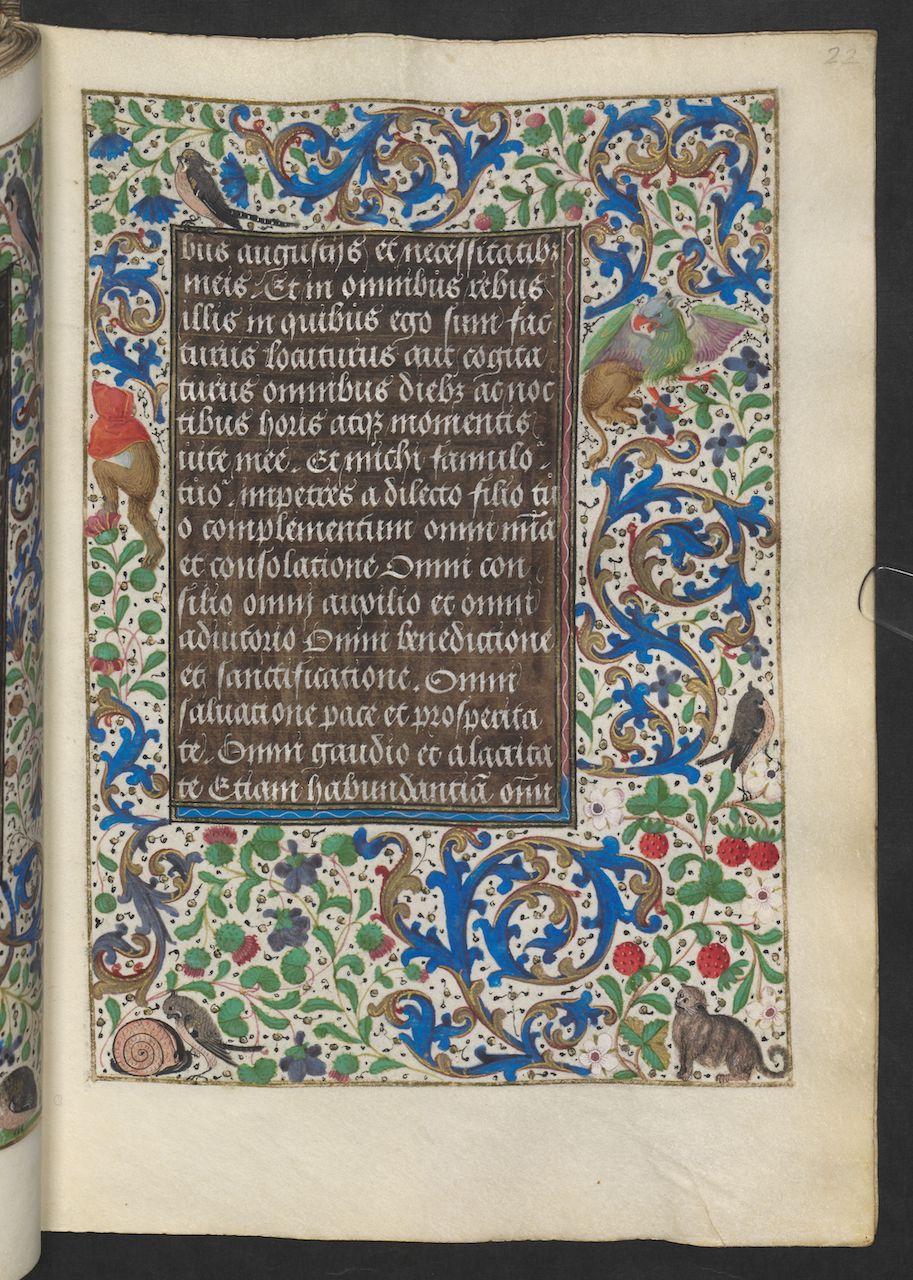 22
bus augustijs et necessitatibꝫ
meis. Et in omnibus rebus
illis in quibus ego sum fac
turus locuturus aut cogita
turus omnibus diebꝫ ac noc
tibus horis atqꝫ momentis
uite mee. Et michi famulo
tuo impetres a dilecto filio tu
o complementum omni mīa
et consolatione Omni con
silio omni auxilio et omni
adiutorio Omni benedictione
et sanctificatione. Omni
saluatione pace et prosperita
te. Omni gaudio et alacrita
te Etiam habundantiā omni